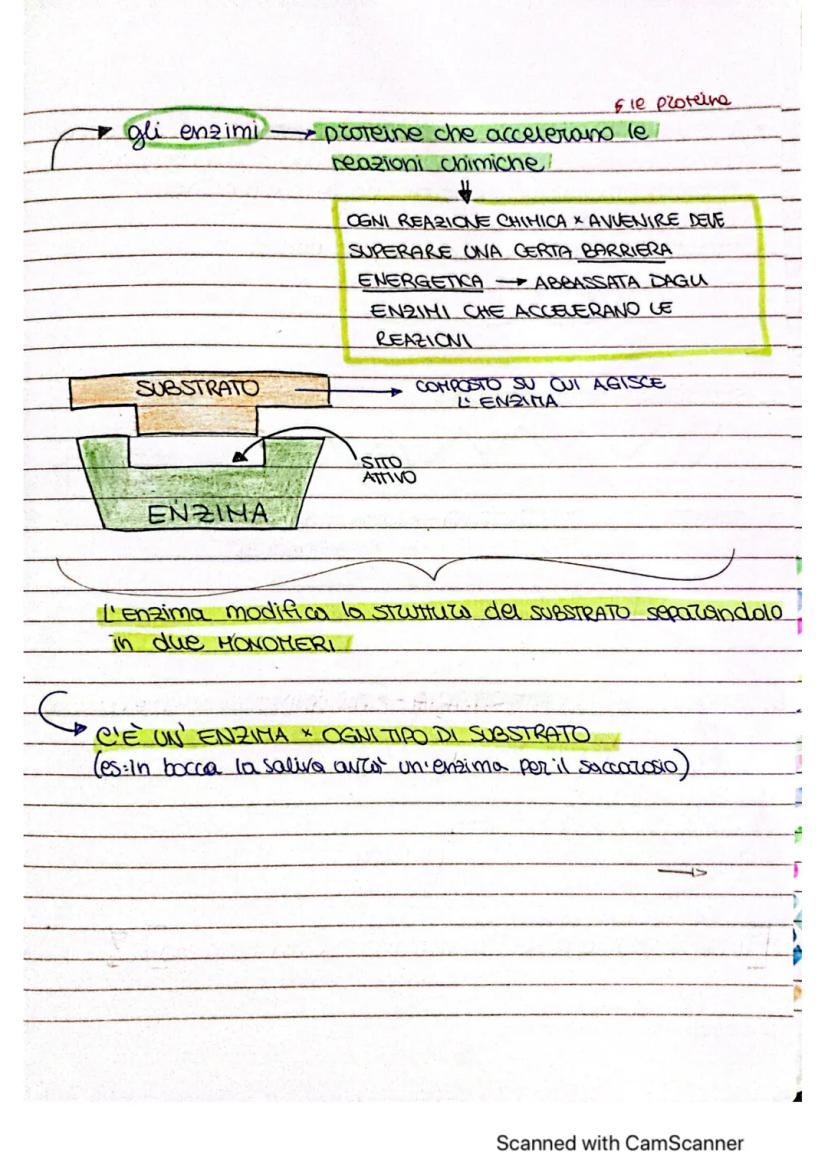 le proteine
gli enzimi → proteine che accelerano le
reazioni chimiche
OGNI REAZIONE CHIMICA × AVVENIRE DEVE
SUPERARE UNA CERTA BARRIERA
ENERGETICA → ABBASSATA DAGLI
ENZIMI CHE ACCELERANO LE
REAZIONI
SUBSTRATO → COMPOSTO SU CUI AGISCE
L'ENZIMA
SITO
ATTIVO
ENZIMA
L'enzima modifica la struttura del SUBSTRATO separandolo
in due MONOMERI
C'È UN' ENZIMA × OGNI TIPO DI SUBSTRATO
(es: In bocca la saliva avrà un'enzima per il saccarosio)
Scanned with CamScanner